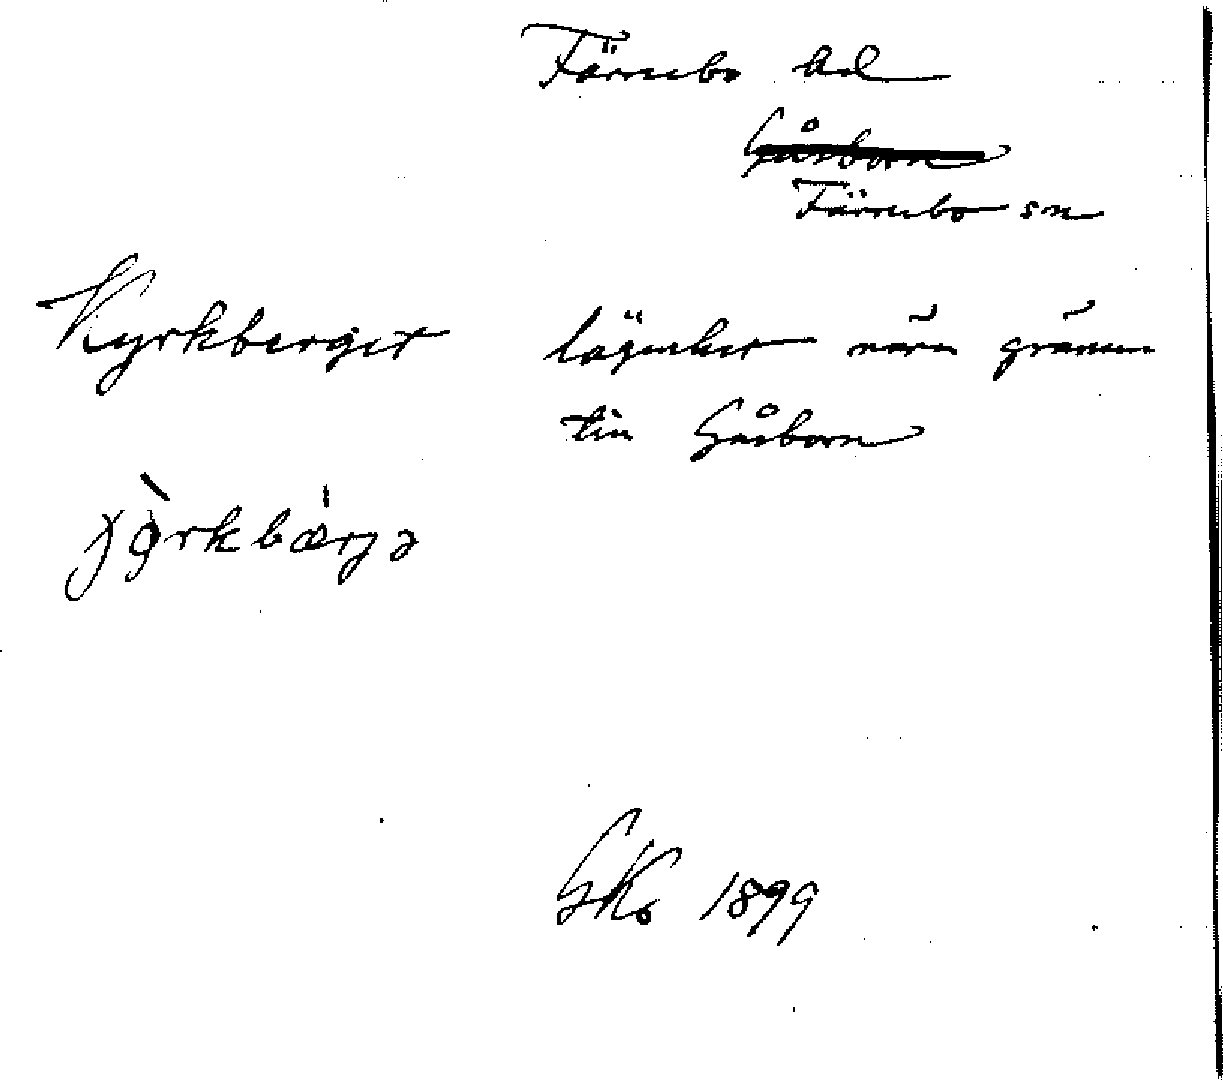 Färnebo hd
Gåsborn
Färnebo sn
Kyrkberget lägenhet nära gränsen
till Gåsborn
GKs 1899